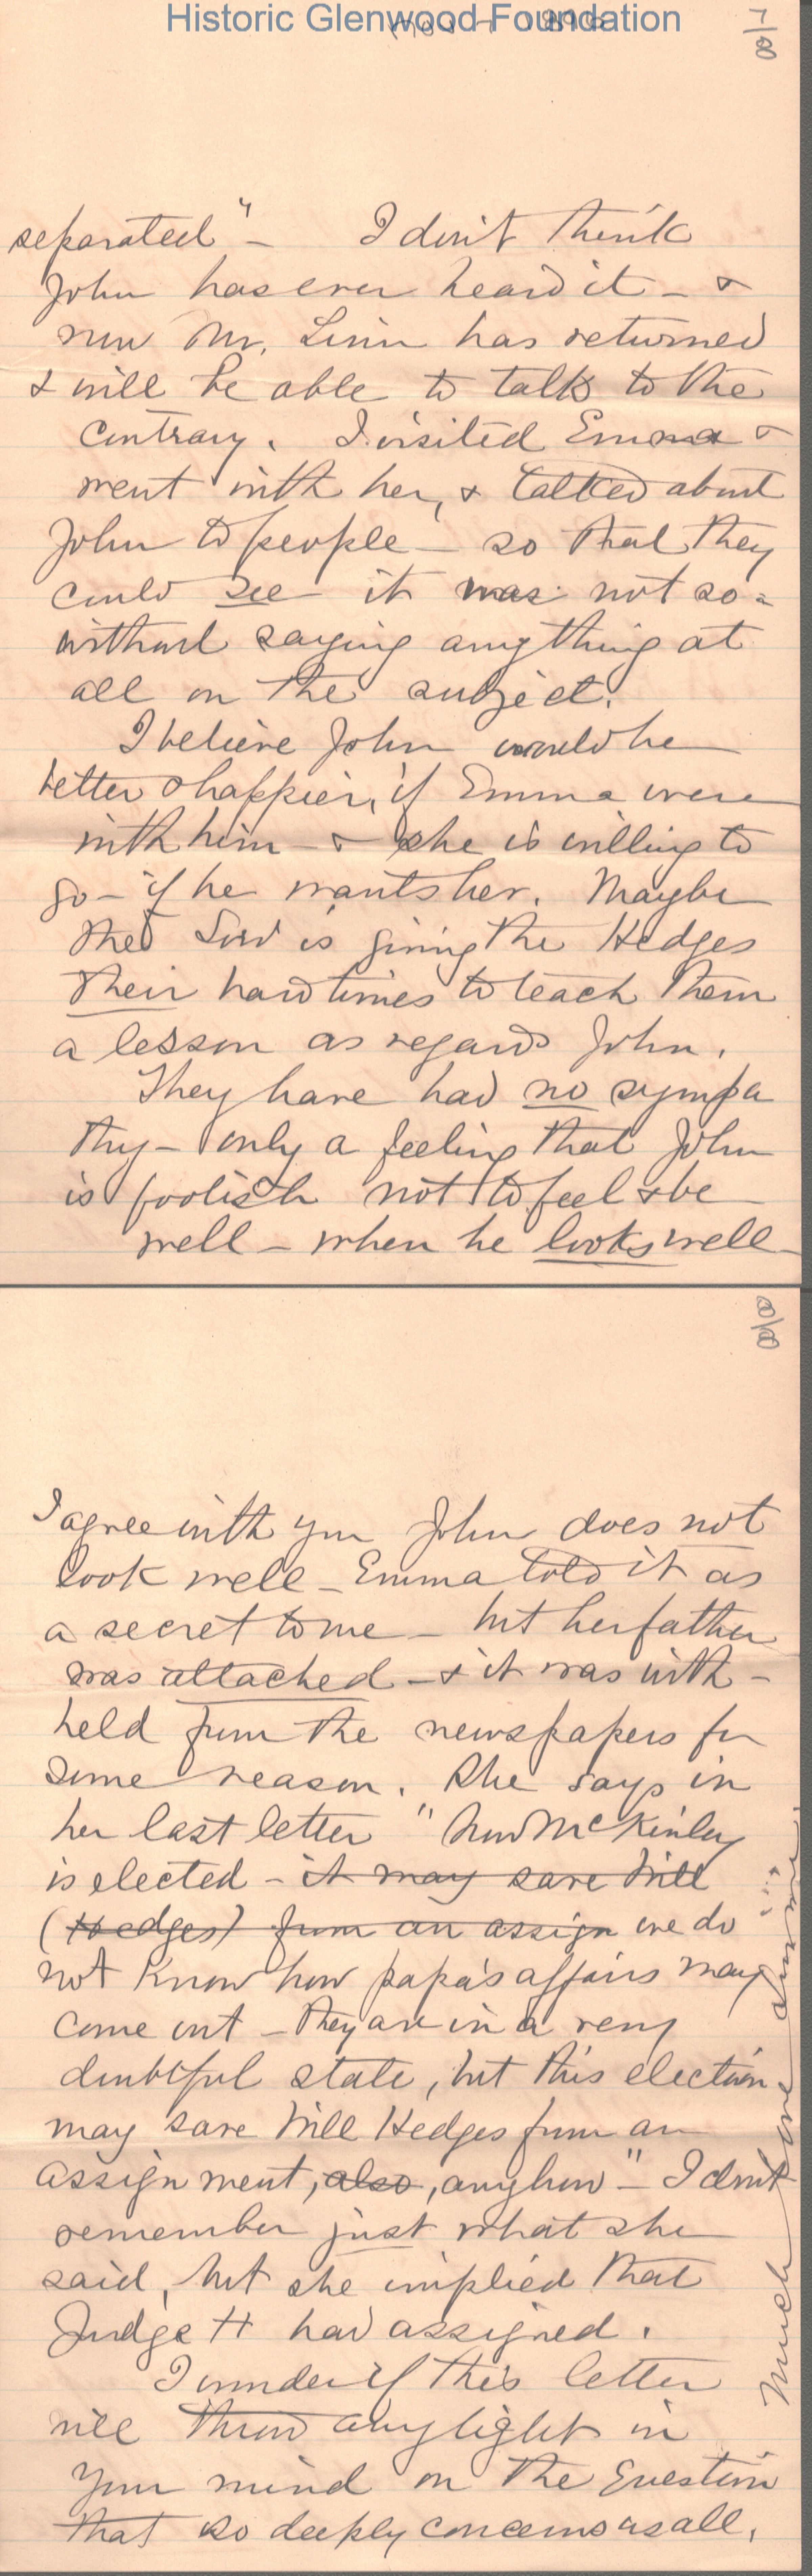 Historic Glenwood Foundation
Nov 7 1896
7/8
separated" - I don't think
John has ever heard it - &
now Mr. Linn has returned
& will be able to talk to the
contrary. I visited Emma &
went with her, & talked about
John to people - so that they
could see it was not so -
without saying anything at
all on the subject.
I believe John would be
better & happier, if Emma were
with him - & she is willing to
go - if he wants her. Maybe
the Lord is giving the Hedges
their hard times to teach them
a lesson as regards John.
They have had no sympa
thy - only a feeling that John
is foolish not to feel & be
well - when he looks well -
8/8
I agree with you John does not
look well - Emma told it as
a secret to me - but her father
was attached - & it was with -
held from the newspapers for
some reason. She says in
her last letter "Now McKinley
is elected - it may save Will
(Hedges) from an assign we do
not know how papa's affairs may
come out - they are in a very
doubtful state, but this election
may save Will Hedges from an
assignment, also, anyhow" - I don't
remember just what she
said, but she implied that
Judge H had assigned.
I wonder if this letter
will throw any light in
your mind on the question
that so deeply concerns us all.
Much love